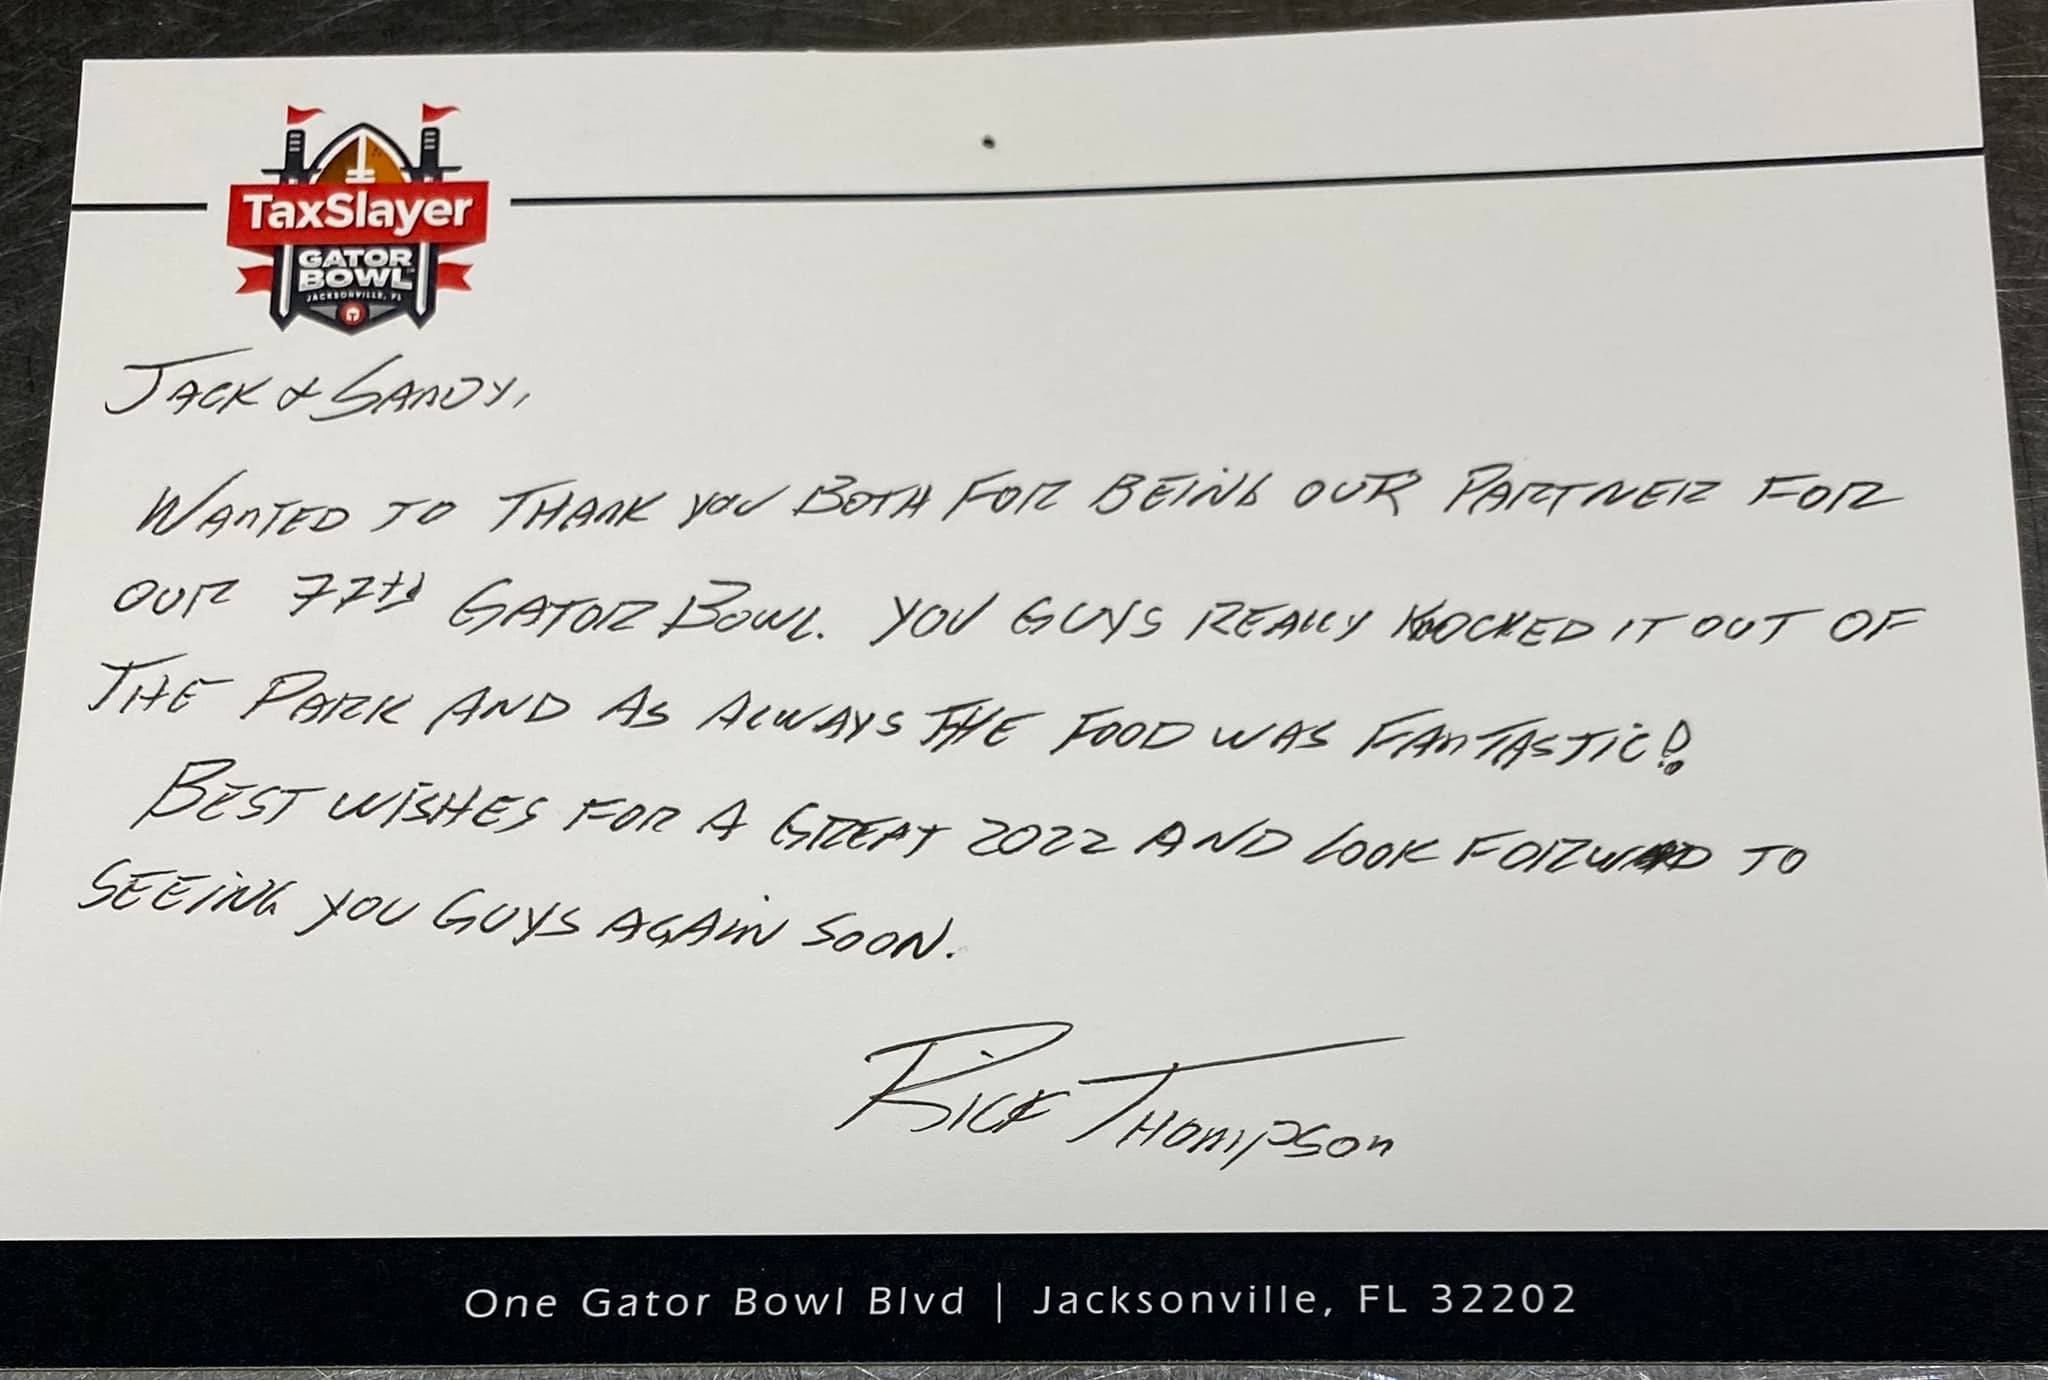 TaxSlayer
GATOR
BOWL™
JACKSONVILLE, FL
JACK & SANDY,
WANTED TO THANK YOU BOTH FOR BEING OUR PARTNER FOR
OUR 77TH GATOR BOWL. YOU GUYS REALLY KNOCKED IT OUT OF
THE PARK AND AS ALWAYS THE FOOD WAS FANTASTIC!
BEST WISHES FOR A GREAT 2022 AND LOOK FORWARD TO
SEEING YOU GUYS AGAIN SOON.
RICK THOMPSON
One Gator Bowl Blvd | Jacksonville, FL 32202